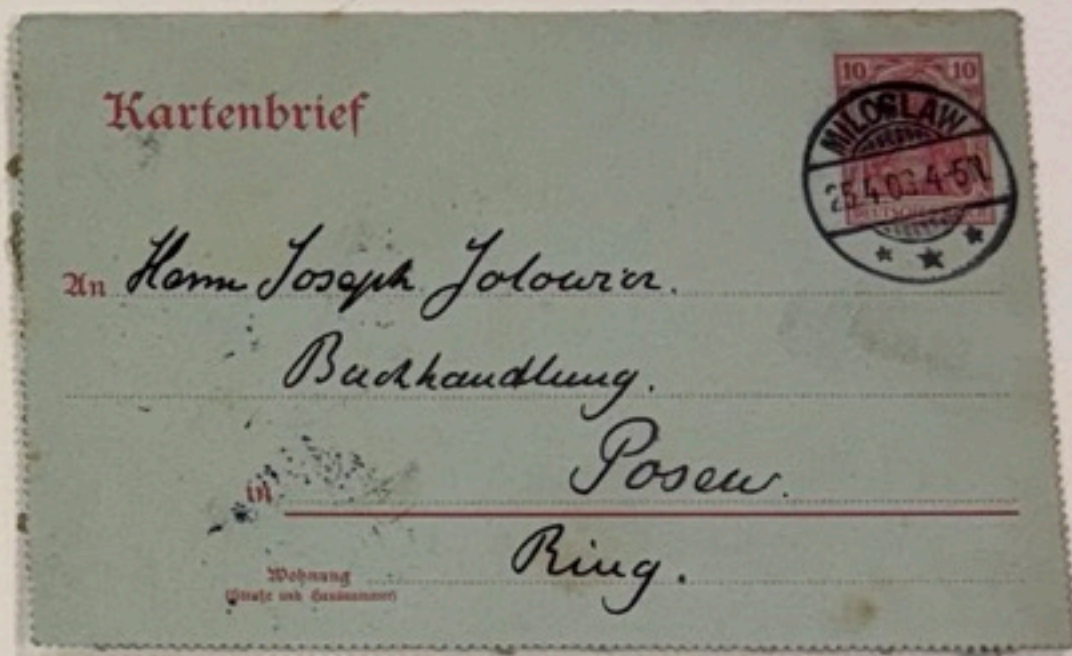 Kartenbrief
10 10
MILOSLAW
25.4.03.4-5N.
DEUTSCHES REICH
An Herrn Joseph Jolowicz.
Buchhandlung.
in Posen.
Ring.
Wohnung
(Straße und Hausnummer)